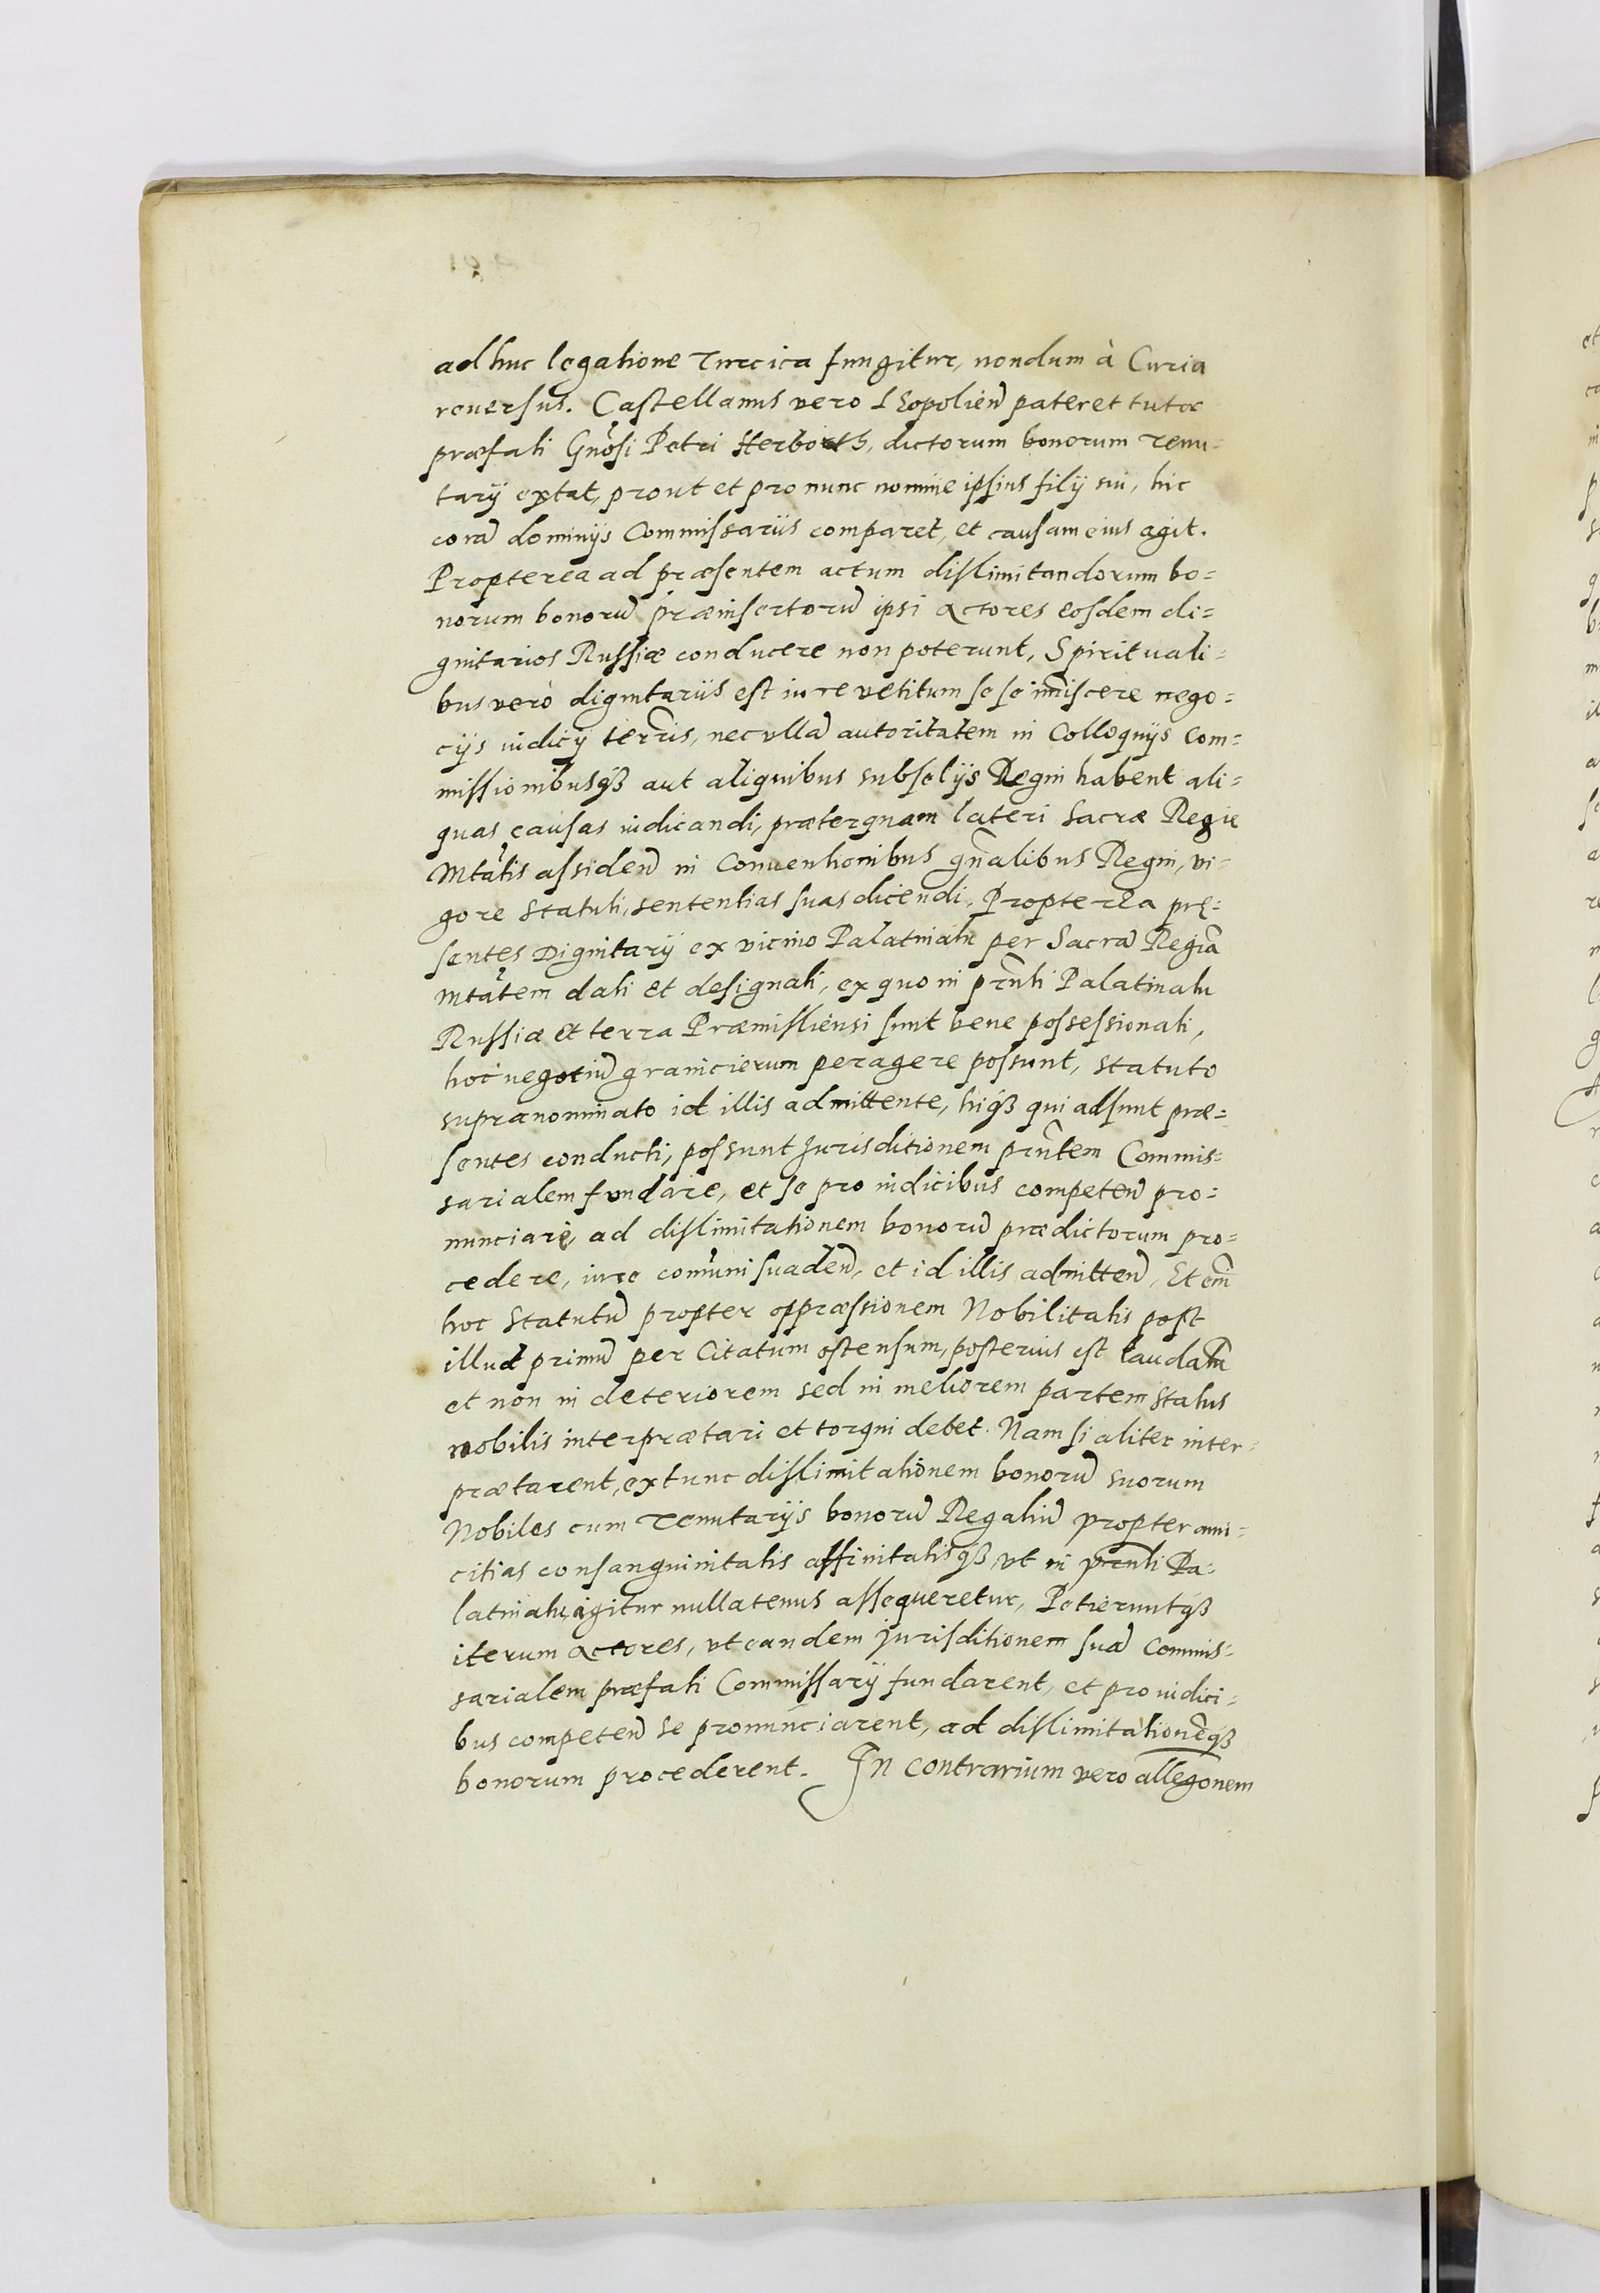 adhuc legatione Turcica fungitur, nondum à Curia
reuersus. Castellanus vero Leopolień pater et tutor
præfati Gnōsi Petri Herborth, dictorum bonorum Tenu=
tarÿ extat, prout et pro nunc nomine ipsius filÿ sui, hic
corā dominÿs Commissariis comparet, et causam eius agit.
Propterea ad præsentem actum dislimitandorum bo=
norum bonorū præinsertorū ipsi Actores eosdem di=
gnitarios Russiæ conducere non poterunt, Spirituali=
bus verò dignitariis est iure vetitum se se im̄iscere nego=
cÿs iudicÿ terr̄is, nec vllā autoritatem in Colloquÿs Com=
missionibusq3 aut aliquibus subselÿs Regni habent ali=
quas causas iudicandi, præterquam lateri Sacræ Regie
Mtātis assideñ in Conuentionibus gn̄alibus Regni, vi=
gore statuti, sententias suas dicendi. Propterea prę=
sentes Dignitarÿ ex vicino Palatinatu per Sacrā Regiā
Mtātem dati et designati, ex quo in prn̄ti Palatinatu
Russiæ et terra Præmisliensi sunt bene possessionati,
hoc negotiū granicierum peragere possunt, statuto
supranominato id illis admittente, hiq3 qui adsunt præ=
sentes conducti, possunt Jurisditionem prn̄tem Commis=
sarialem fundare, et se pro iudicibus competeñ pro=
nunciare, ad dislimitationem bonorū prædictorum pro=
cedere, iure com̄uni suadeñ, et id illis admitteñ, Et em̄
hoc statutū propter oppræssionem Nobilitatis post
illud primū per Citatum ostensum, posterius est laudatū
et non in deteriorem sed in meliorem partem status
nobilis interprætari et torqui debet. Nam si aliter inter=
prætarent, extunc dislimitationem bonorū suorum
Nobiles cum Tenutarÿs bonorū Regaliū propter ami=
citias consanguinitatis affinitatisq3, vt in prn̄ti Pa=
latinatu, igitur nullatenus assequeretur, Petieruntq3
iterum Actores, vt eandem Jurisditionem suā Commis=
sarialem præfati Commissarÿ fundarent, et pro iudici=
bus competeñ se pronunciarent, ad dislimitationēq3
bonorum procederent. In contrarium vero allegōnem